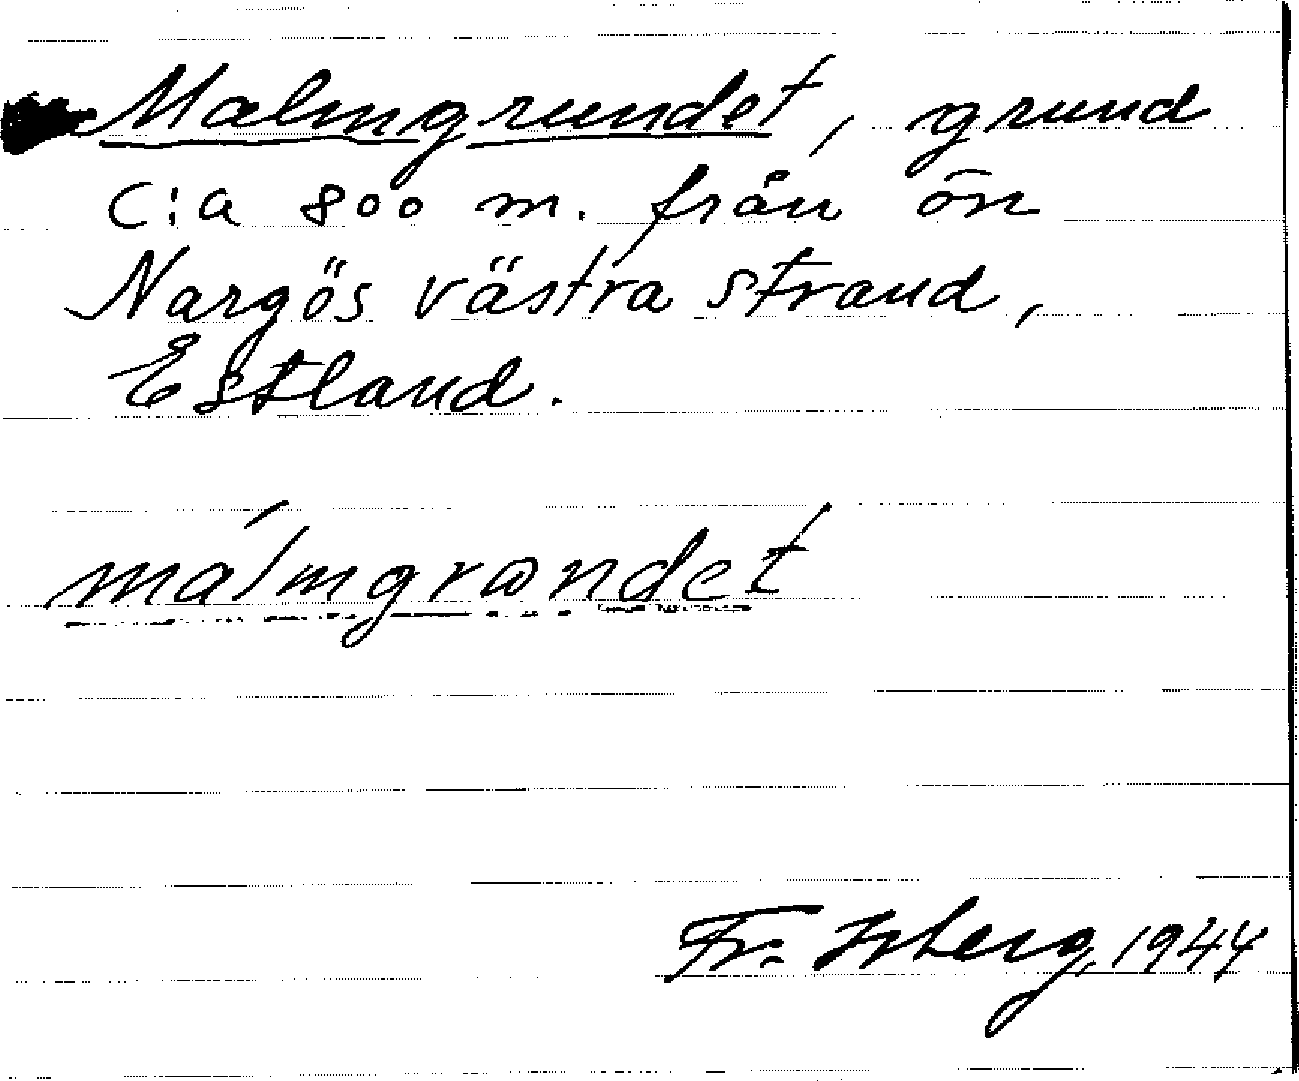 Malmgrundet, grund
C:a 800 m. från ön
Nargös västra strand,
Estland.
málmgrωndet
Fr. Isberg, 1944